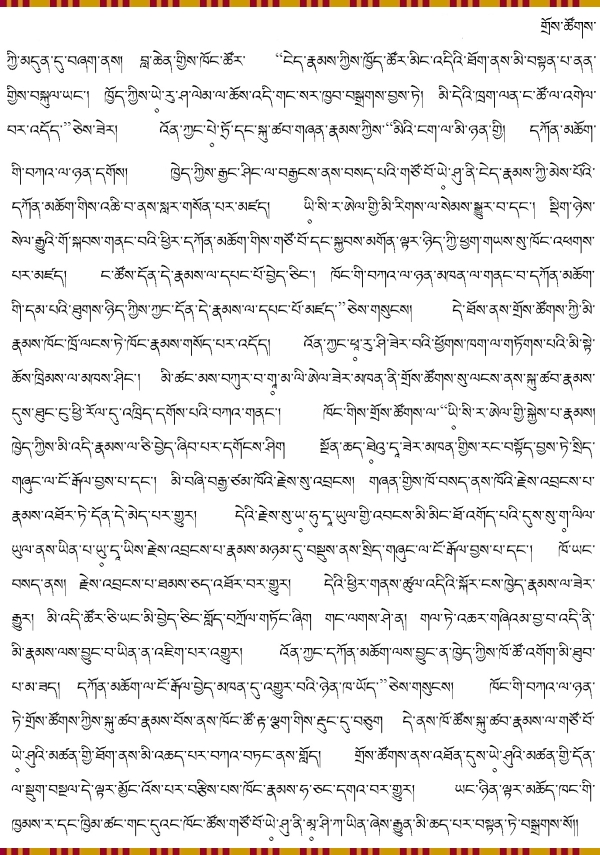 གྲོས་ཚོགས་
ཀྱི་མདུན་དུ་བཞག་ནས། བླ་ཆེན་གྱིས་ཁོང་ཚོར་ “ངེད་རྣམས་ཀྱིས་ཁྱོད་ཚོར་མིང་འདིའི་ཐོག་ནས་མི་བསྟན་པ་ནན་
གྱིས་བསྐུལ་ཡང་། ཁྱོད་ཀྱིས་ཡེ་རུ་ཤ་ལེམ་ལ་ཆོས་འདི་གང་སར་ཁྱབ་བསྒྲགས་བྱས་ཏེ། མི་དེའི་ཁྲག་ལན་ང་ཚོ་ལ་འགེལ་
བར་འདོད་”ཅེས་ཟེར། འོན་ཀྱང་པེ་ཏྲོ་དང་སྐུ་ཚབ་གཞན་རྣམས་ཀྱིས་“མིའི་ངག་ལ་མི་ཉན་གྱི། དཀོན་མཆོག་
གི་བཀའ་ལ་ཉན་དགོས། ཁྱེད་ཀྱིས་རྒྱང་ཤིང་ལ་བརྐྱངས་ནས་བསད་པའི་གཙོ་བོ་ཡེ་ཤུ་ནི་ངེད་རྣམས་ཀྱི་མེས་པོའི་
དཀོན་མཆོག་གིས་འཆི་བ་ནས་སླར་གསོན་པར་མཛད། ཡི་སི་ར་ཨེལ་གྱི་མི་རིགས་ལ་སེམས་སྒྱུར་བ་དང་། སྡིག་ཉེས་
སེལ་རྒྱུའི་གོ་སྐབས་གནང་བའི་ཕྱིར་དཀོན་མཆོག་གིས་གཙོ་བོ་དང་སྐྱབས་མགོན་ལྟར་ཉིད་ཀྱི་ཕྱག་གཡས་སུ་ཁོང་འཕགས་
པར་མཛད། ང་ཚོས་དོན་དེ་རྣམས་ལ་དཔང་པོ་བྱེད་ཅིང་། ཁོང་གི་བཀའ་ལ་ཉན་མཁན་ལ་གནང་བ་དཀོན་མཆོག་
གི་དམ་པའི་ཐུགས་ཉིད་ཀྱིས་ཀྱང་དོན་དེ་རྣམས་ལ་དཔང་པོ་མཛད་”ཅེས་གསུངས། དེ་ཐོས་ནས་གྲོས་ཚོགས་ཀྱི་མི་
རྣམས་ཁོང་ཁྲོ་ལངས་ཏེ་ཁོང་རྣམས་གསོད་པར་འདོད། འོན་ཀྱང་ཕཱ་རུ་ཤི་ཟེར་བའི་ཕྱོགས་ཁག་ལ་གཏོགས་པའི་མི་སྟེ་
ཆོས་ཁྲིམས་ལ་མཁས་ཤིང་། མི་ཚང་མས་བཀུར་བ་གཱ་མ་ལི་ཨེལ་ཟེར་མཁན་ནི་གྲོས་ཚོགས་སུ་ལངས་ནས་སྐུ་ཚབ་རྣམས་
དུས་ཐུང་ངུ་ཕྱི་རོལ་དུ་འཁྲིད་དགོས་པའི་བཀའ་གནང་། ཁོང་གིས་གྲོས་ཚོགས་ལ་“ཡི་སི་ར་ཨེལ་གྱི་སྐྱེས་པ་རྣམས།
ཁྱེད་ཀྱིས་མི་འདི་རྣམས་ལ་ཅི་བྱེད་ཞིབ་པར་དགོངས་ཤིག སྔོན་ཆད་ཐེའུ་དཱ་ཟེར་མཁན་གྱིས་རང་བསྟོད་བྱས་ཏེ་སྲིད་
གཞུང་ལ་ངོ་རྒོལ་བྱས་པ་དང་། མི་བཞི་བརྒྱ་ཙམ་ཁོའི་རྗེས་སུ་འབྲངས། གཞན་གྱིས་ཁོ་བསད་ནས་ཁོའི་རྗེས་འབྲངས་པ་
རྣམས་འཐོར་ཏེ་དོན་དེ་མེད་པར་གྱུར། དེའི་རྗེས་སུ་ཡ་ཧུ་དཱ་ཡུལ་གྱི་འབངས་མི་མིང་ཐོ་འགོད་པའི་དུས་སུ་གཱ་ལིལ་
ཡུལ་ནས་ཡིན་པ་ཡུ་དཱ་ཡིས་རྗེས་འབྲངས་པ་རྣམས་མཉམ་དུ་བསྡུས་ནས་སྲིད་གཞུང་ལ་ངོ་རྒོལ་བྱས་པ་དང་། ཁོ་ཡང་
བསད་ནས། རྗེས་འབྲངས་པ་ཐམས་ཅད་འཐོར་བར་གྱུར། དེའི་ཕྱིར་གནས་ཚུལ་འདིའི་སྐོར་ངས་ཁྱེད་རྣམས་ལ་ཟེར་
རྒྱུར། མི་འདི་ཚོར་ཅི་ཡང་མི་བྱེད་ཅིང་གློད་བཀྲོལ་གཏོང་ཞིག གང་ལགས་ཤེ་ན། གལ་ཏེ་འཆར་གཞིའམ་བྱ་བ་འདི་ནི་
མི་རྣམས་ལས་བྱུང་བ་ཡིན་ན་འཇིག་པར་འགྱུར། འོན་ཀྱང་དཀོན་མཆོག་ལས་བྱུང་ན་ཁྱེད་ཀྱིས་ཁོ་ཚོ་འགོག་མི་ཐུབ་
པ་མ་ཟད། དཀོན་མཆོག་ལ་ངོ་རྒོལ་བྱེད་མཁན་དུ་འགྱུར་བའི་ཉེན་ཁ་ཡོད་”ཅེས་གསུངས། ཁོང་གི་བཀའ་ལ་ཉན་
ཏེ་གྲོས་ཚོགས་ཀྱིས་སྐུ་ཚབ་རྣམས་བོས་ནས་ཁོང་ཚོ་རྟ་ལྕག་གིས་རྡུང་དུ་བཅུག དེ་ནས་ཁོ་ཚོས་སྐུ་ཚབ་རྣམས་ལ་གཙོ་བོ་
ཡེ་ཤུའི་མཚན་གྱི་ཐོག་ནས་མི་འཆད་པར་བཀའ་བཏང་ནས་གློད། གྲོས་ཚོགས་ནས་འཐོན་དུས་ཡེ་ཤུའི་མཚན་གྱི་དོན་
ལ་སྡུག་བསྔལ་དེ་ལྟར་མྱོང་འོས་པར་བརྩིས་པས་ཁོང་རྣམས་ཧ་ཅང་དགའ་བར་གྱུར། ཡང་ཉིན་ལྟར་མཆོད་ཁང་གི་
ཁྱམས་ར་དང་ཁྱིམ་ཚང་གང་དུའང་ཁོང་ཚོས་གཙོ་བོ་ཡེ་ཤུ་ནི་མཱ་ཤི་ཀ་ཡིན་ཞེས་རྒྱུན་མི་ཆད་པར་བསྟན་ཏེ་བསྒྲགས་སོ།།